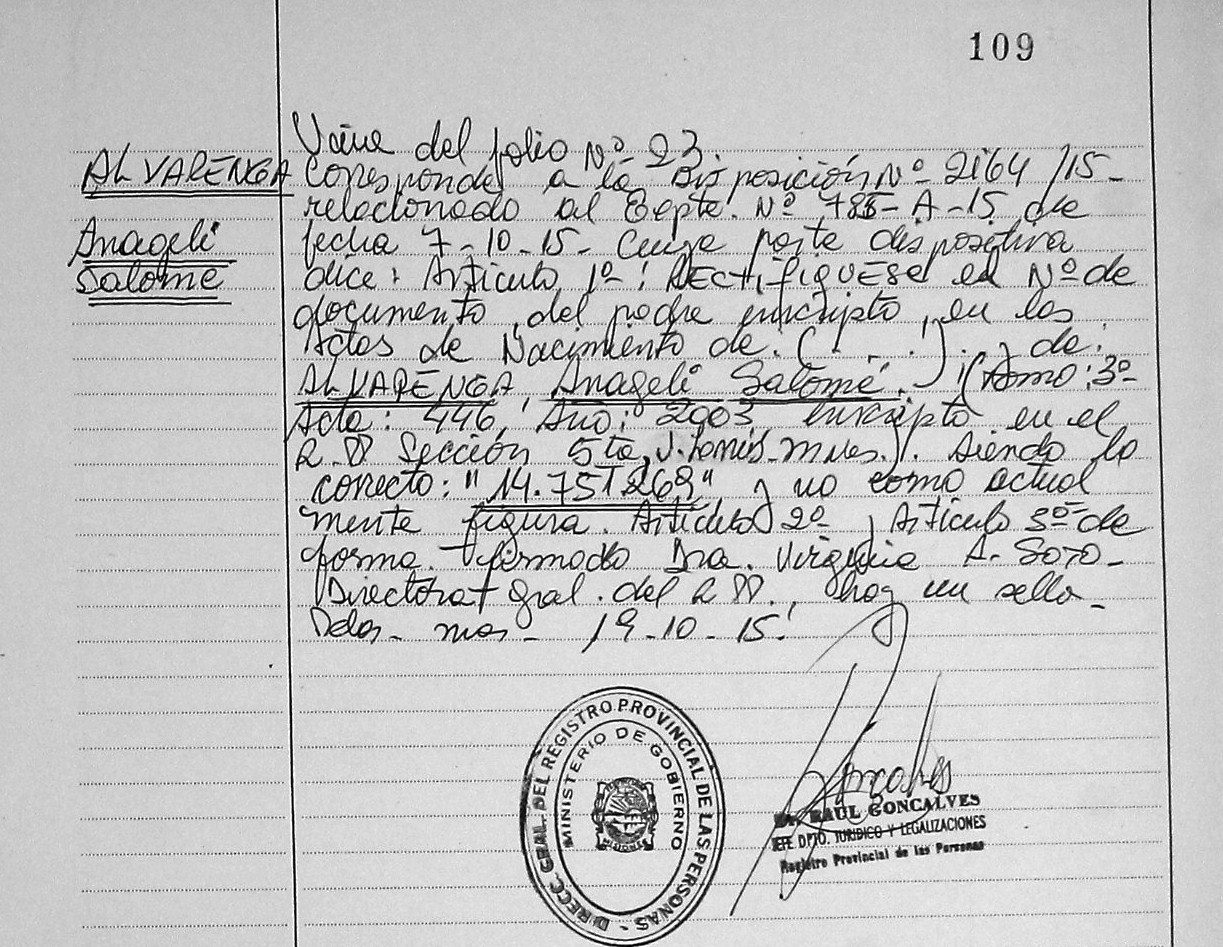 109
ALVARENGA
Anageli
Salomé
Viene del folio Nº 23.
Corresponde a la Disposición Nº 2164/15-
relacionado al Expte. Nº 785-A-15 de
fecha 7-10-15- Cuya parte dispositiva
dice: Artículo 1º: RECTIFIQUESE el Nº de
documento del padre inscripto, en las
Actas de Nacimiento de. (.....). y de:
ALVARENGA, Anageli Salomé. (Tomo: 3º
Acta: 446, Año: 2003, inscripto en el
R.PP Sección 5ta, Mnes.). siendo lo
correcto: "14.751269" y no como actual
mente figura. Artículo 2º y Artículo 3º de
forma. firmado Dra. Virginia A. Soto-
Directora Gral. del R PP., hay un sello-
Pdas- mns- 19-10-15.
DIRECC. GRAL. DEL REGISTRO PROVINCIAL DE LAS PERSONAS -
MINISTERIO DE GOBIERNO
MISIONES
RAUL GONCALVES
JEFE DPTO. JURIDICO Y LEGALIZACIONES
Registro Provincial de las Personas